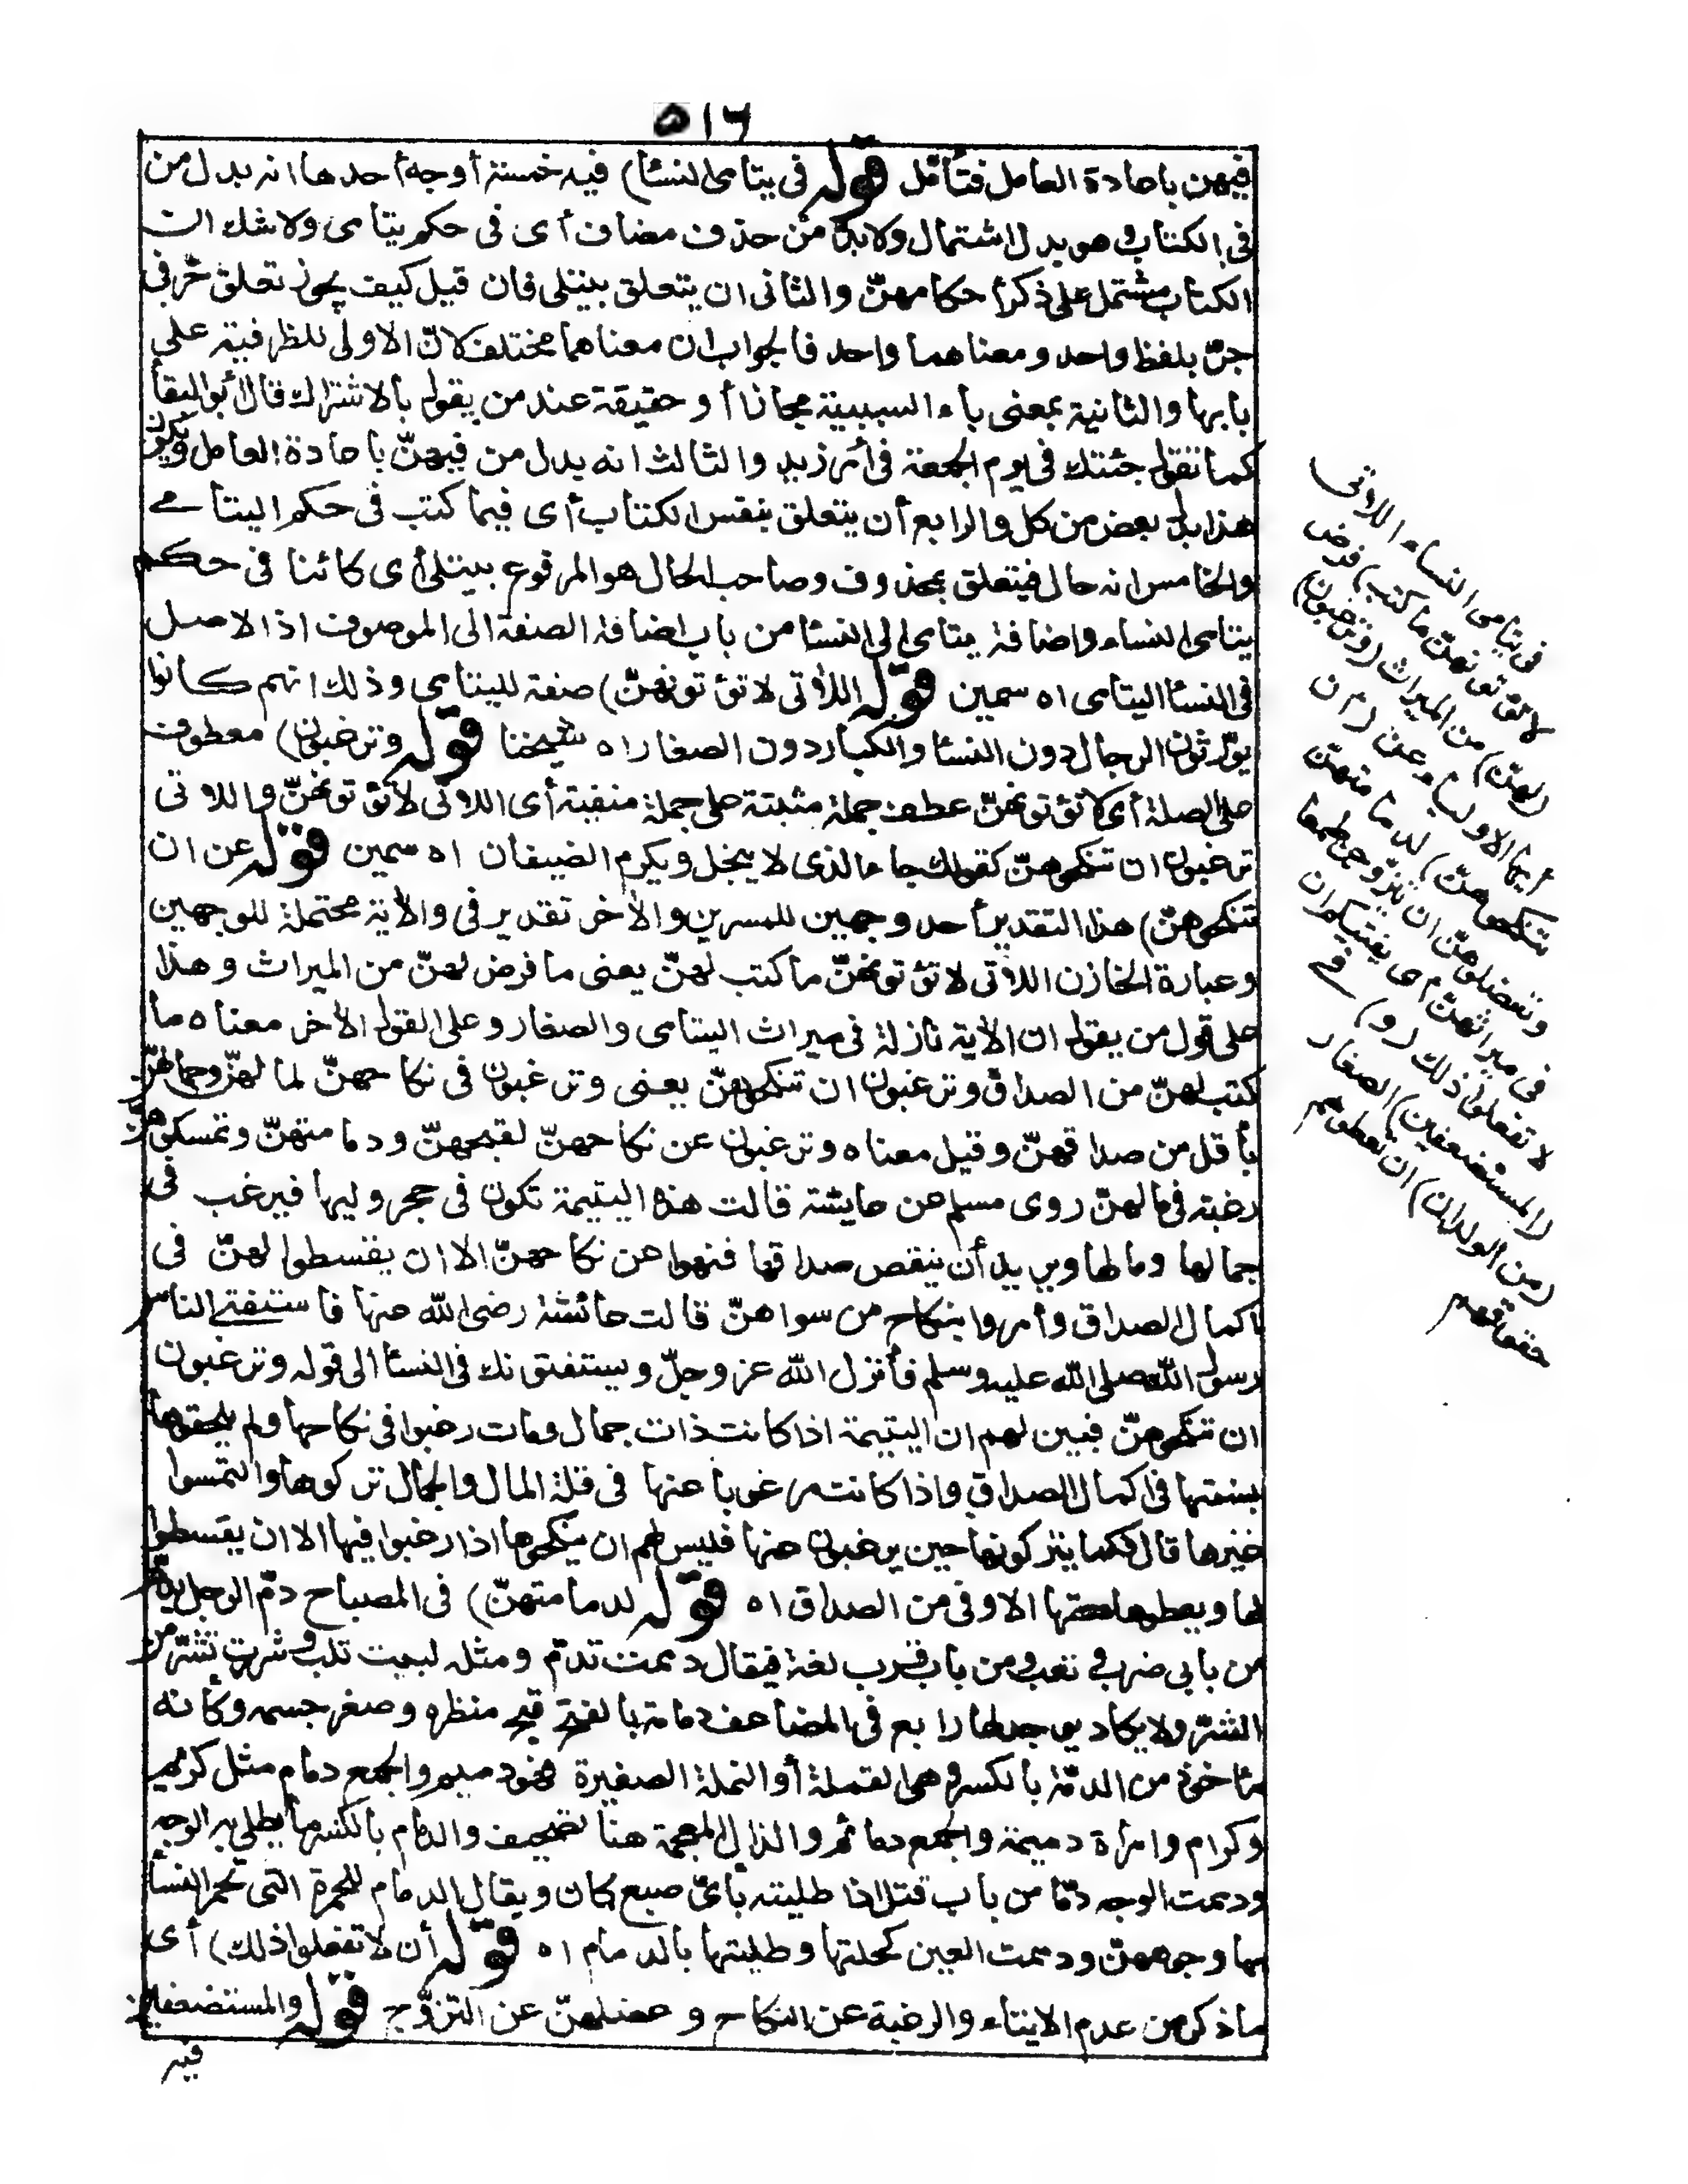 ٥١٦
فيهن باعادة العامل فتأمّل قوله في يتامى النسا) فيه خمسة أوجه أحدها انه بدل من
في الكتاب وهو بدل اشتمال ولابدّ من حذف مضاف أى فى حكم يتامى ولا شك ان
الكتاب مشتمل على ذكر أحكامهنّ والثانى ان يتعلق بيتلى فان قيل كيف يجوز تعلق حرفى
جرّ بلفظ واحد ومعناهما واحد فالجواب ان معناهما مختلف لانّ الاولى للظرفية على
بابها والثانية بمعنى باء السببية مجازا أو حقيقة عند من يقول بالاشتراك قال أبو البقا
كما تقول جئتك فى يوم الجمعة فى أمر زيد والثالث انه بدل من فيهنّ باعادة العامل ويكون
هذا بدل بعض من كل والرابع أن يتعلق بنفس الكتاب أى فيما كتب فى حكم اليتامے
والخامس انه حال فيتعلق بمحذوف وصاحب الحال هو المرفوع بيتلى أى كائنا فى حكم
يتامى النساء واضافة يتامى الى النسا من باب اضافة الصفة الى الموصوف اذ الاصل
فى النسا اليتامى اه سمين قوله اللاتى لا تؤتونهنّ) صفة لليتامى وذلك انهم كانوا
يورّثون الرجال دون النسا والكبار دون الصغار اه شيخنا قوله وترغبون) معطوف
على الصلة أى لا تؤتونهنّ عطف جملة مثبتة على جملة منفية أى اللاتى لا تؤتونهنّ واللاتى
ترغبون ان تنكحوهنّ كقولك جاء الذى لا يبخل ويكرم الضيفان اه سمين قوله عن ان
تنكحوهنّ) هذا التقدير أحد وجهين للمسرين والآخر تقدير فى والآية محتملة للوجهين
وعبارة الخازن اللاتى لا تؤتونهنّ ما كتب لهنّ يعنى ما فرض لهنّ من الميراث وهذا
على قول من يقول ان الآية نازلة فى ميراث اليتامى والصغار وعلى القول الآخر معناه ما
كتب لهنّ من الصداق وترغبون ان تنكحوهنّ يعنى وترغبون فى نكاحهنّ لما لهنّ وجمالهنّ
بأقل من صداقهنّ وقيل معناه وترغبون عن نكاحهنّ لقبحهنّ ودمامتهنّ وتمسكوهنّ
رغبة فى مالهنّ روى مسلم عن عايشة قالت هذه اليتيمة تكون فى حجر وليها فيرغب فى
جمالها ومالها ويريد أن ينقص صداقها فنهوا عن نكاحهنّ الا ان يقسطوا لهنّ فى
اكمال الصداق وأمروا بنكاح من سواهنّ قالت عائشة رضى الله عنها فاستفتے الناس
رسول الله صلى الله عليه وسلم فأنزل الله عز وجلّ ويستفتونك فى النسا الى قوله وترغبون
ان تنكحوهنّ فبين لهم ان اليتيمة اذا كانت ذات جمال ومات رغبوا فى نكاحها ولم يلحقوها
بسنتها فى اكمال الصداق واذا كانت مرغوبا عنها فى قلة المال والجمال تركوها والتمسوا
غيرها قال فكما يتركونها حين يرغبون عنها فليس لهم ان ينكحوها اذا رغبوا فيها الا ان يقسطوا
لها ويعطوها حقها الاوفى من الصداق اه قوله لدمامتهنّ) فى المصباح دمّ الرجل يدمّ
من بابى ضرب وتعب ومن باب قرب لغة فيقال دممت تدمّ ومثله لببت تلب وشررت تشرّ من
الشرّ ولا يكاد يوجد لها رابع فى المضاعف دمامة بالفتح قبح منظره وصغر جسمه وكأنه
مأخوذ من الدمّة بالكسر وهى القملة أو النملة الصغيرة فهو دميم والجمع دمام مثل كريم
وكرام وامرأة دميمة والجمع دمائم والذال المعجمة هنا تصحيف والدمام بالكسر ما يطلى به الوجه
ودممت الوجه دمّا من باب قتل اذا طليته بأىّ صبغ كان ويقال الدمام للحمرة التى تحمر النسا
بها وجوههنّ ودممت العين كحلتها وطليتها بالدمام اه قوله أن لا تفعلوا ذلك) أى
ما ذكر من عدم الايتاء والرغبة عن النكاح وعضلهنّ عن التزوّج قوله والمستضعفين
فيه
فى يتامى النساء اللاتى
لا تؤتونهنّ ما كتب) فرض
(لهنّ) من الميراث (وترغبون)
أيها الاولياء عن (ان
تنكحوهنّ) لدمامتهنّ
وتعضلوهنّ ان يتزوّجن طمعا
فى ميراثهنّ أى يفتيكم ان
لا تفعلوا ذلك (و) فے
(المستضعفين) الصغار
(من الولدان) ان تعطوهم
حقوقهم